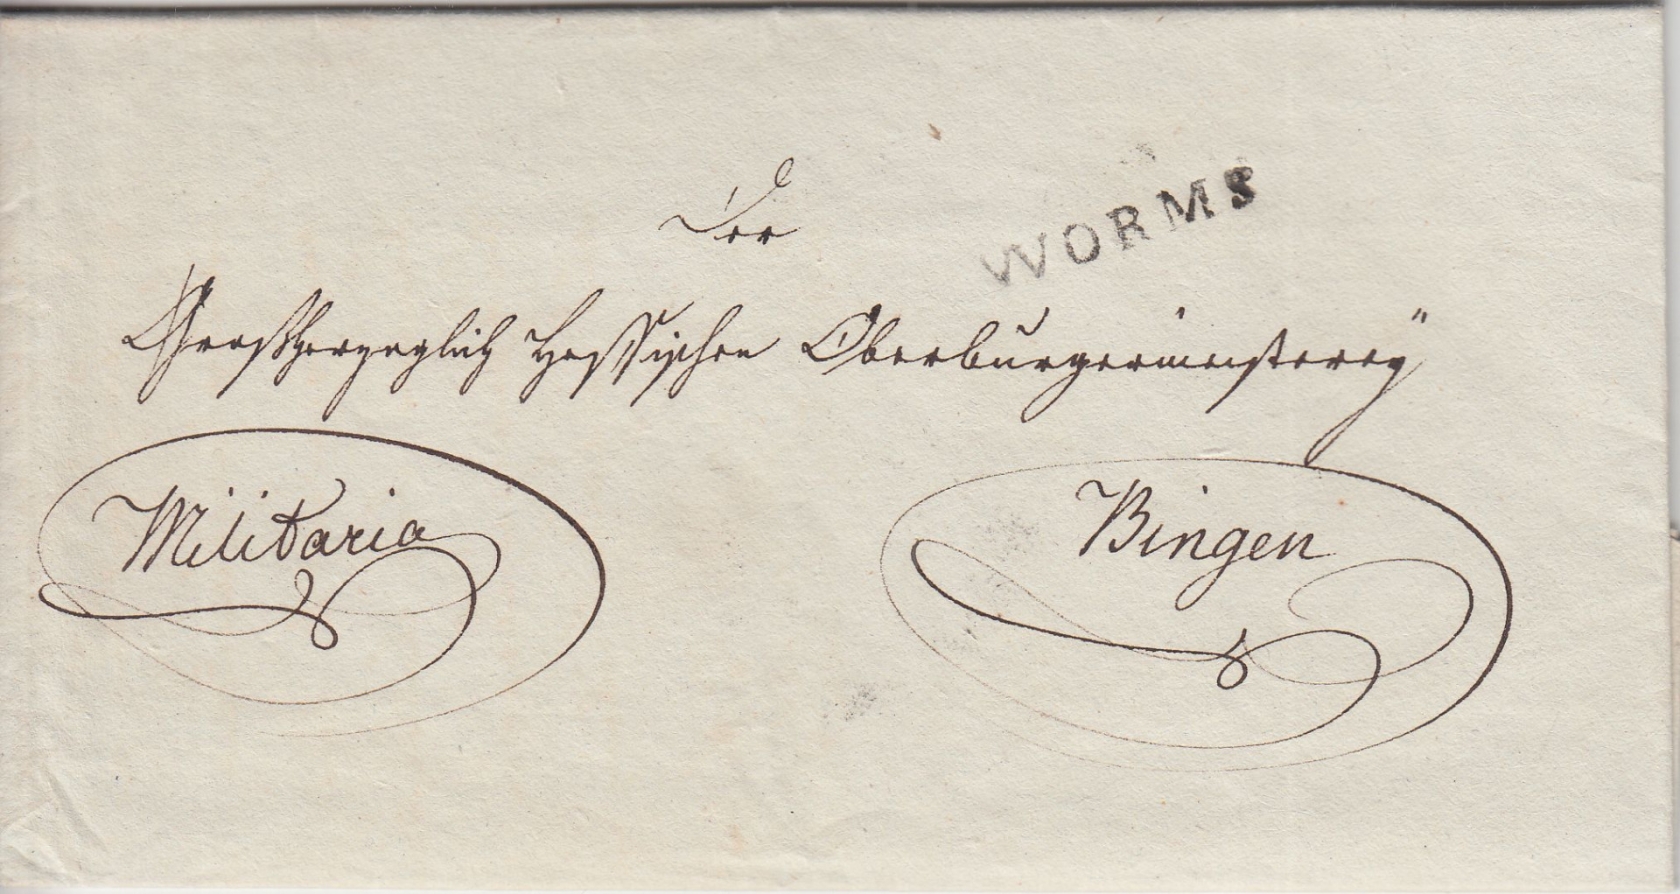 Der
WORMS
Großherzoglich Hessischen Oberbürgermeisterey
Militaria
Bingen